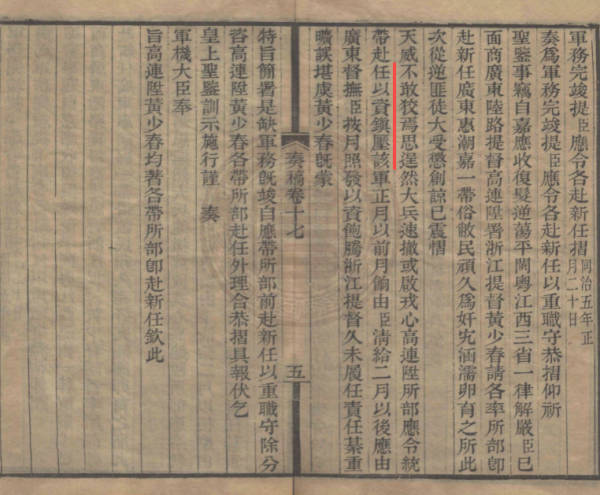 軍務完竣提臣應令各赴新任摺
同治五年正
月二十日
奏爲軍務完竣提臣應令各赴新任以重職守恭摺仰祈
聖鑒事竊自嘉應收復髮逆蕩平閩粵江西三省一律解嚴臣已
面商廣東陸路提督高連陞署浙江提督黃少春請各率所部卽
赴新任廣東惠潮嘉一帶俗敝民頑久爲奸宄涵濡卵育之所此
次從逆匪徒大受懲創諒已震慴
天威不敢狡焉思逞然大兵速撤或啟戎心高連陞所部應令統
帶赴任以資鎮壓該軍正月以前月餉由臣清給二月以後應由
廣東督撫臣按月照發以資飽騰浙江提督久未履任責任綦重
曠誤堪虞黃少春旣蒙
奏稿卷十七
五
特旨簡署是缺軍務旣竣自應帶所部前赴新任以重職守除分
咨高連陞黃少春各帶所部赴任外理合恭摺具報伏乞
皇上聖鑒訓示施行謹 奏
軍機大臣奉
旨高連陞黃少春均著各帶所部卽赴新任欽此